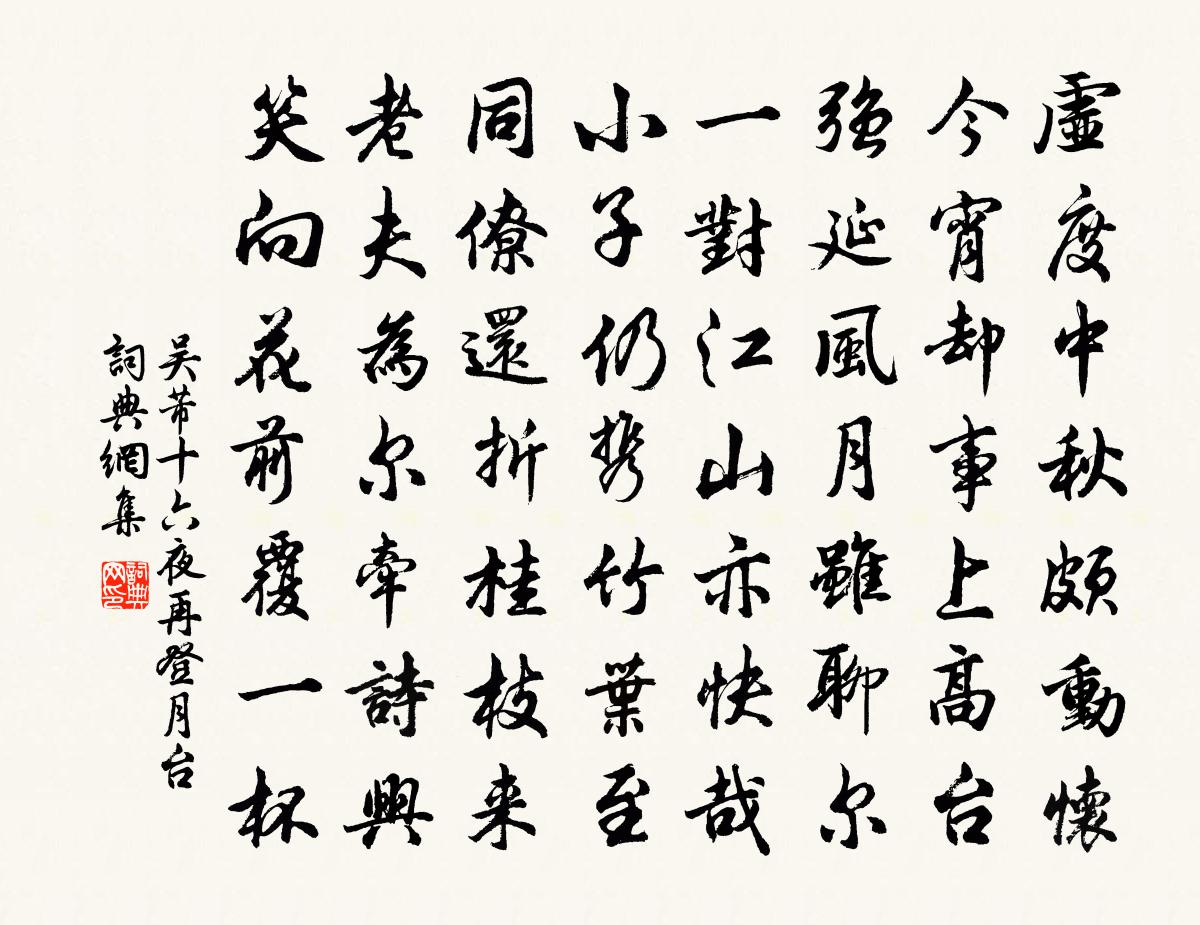 虛度中秋頗動懷
今宵却事上高台
強延風月雖聊尔
一對江山亦快哉
小子仍携竹葉至
同僚還折桂枝来
老夫為尔牽詩興
笑向花前覆一杯
吴芾十六夜再登月台
詞典網集
詞典网印